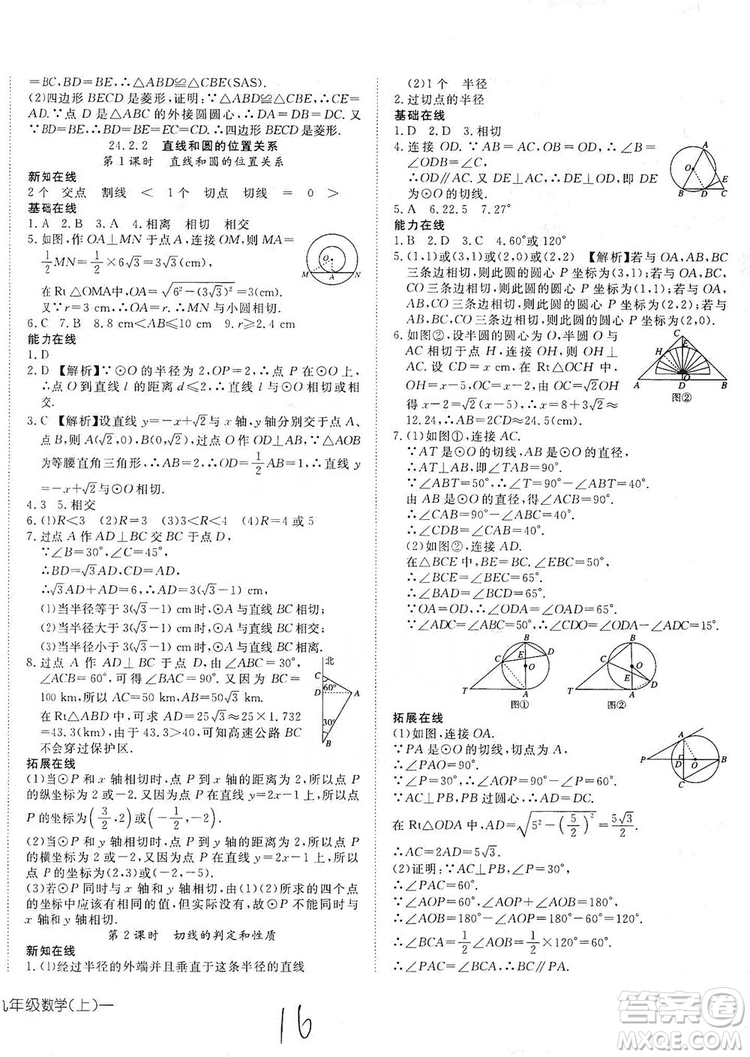 =BC,BD=BE,∴△ABD≌△CBE(SAS).
(2)四边形BECD是菱形,证明:∵△ABD≌△CBE,∴CE=
AD.∵点D是△ABC的外接圆圆心,∴DA=DB=DC.又
∵BD=BE,∴BD=BE=EC=CD.∴四边形BECD是菱形.
24.2.2 直线和圆的位置关系
第1课时 直线和圆的位置关系
新知在线
2个 交点 割线 < 1个 切点 切线 = 0 >
基础在线
1.A 2.B 3.A 4.相离 相切 相交
5.如图,作OA⊥MN于点A,连接OM,则MA=
1/2MN=1/2×6√3=3√3(cm).
在Rt△OMA中,OA=√(6²-(3√3)²)=3(cm).
又∵r=3 cm,∴OA=r.∴MN与小圆相切.
M A N
6.C 7.B 8.8 cm<AB≤10 cm 9.r≥2.4 cm
能力在线
1.D
2.D 【解析】∵⊙O的半径为2,OP=2,∴点P在圆上.
∴点O到直线l的距离d≤2.∴直线l与⊙O相切或相
交.
3.C 【解析】设直线y=-x+√2与x轴,y轴分别交于点A,
点B,则A(√2,0),B(0,√2),过点O作OD⊥AB,∵△AOB
为等腰直角三角形,∴AB=2.∴OD=1/2AB=1.∴直线y
=-x+√2与⊙O相切.
4.3 5.相交
6.(1)R<3 (2)R=3 (3)3<R<4或R>5 (4)R=4或5
7.过点A作AD⊥BC于点D,
∵∠B=30°,∠C=45°,
∴BD=√3AD,CD=AD.
∴√3AD+AD=6.∴AD=3(√3-1) cm.
(1)当半径等于3(√3-1) cm时,⊙A与直线BC相切;
(2)当半径大于3(√3-1) cm时,⊙A与直线BC相交;
(3)当半径小于3(√3-1) cm时,⊙A与直线BC相离.
8.过点A作AD⊥BC于点D,由∠ACD=60°,
∠B=30°,得∠CAB=90°.根据题意,得BC=
100 km,所以AC=50 km.又因为∠CAD=30°,
在Rt△ABD中,求得AD=25√3≈25×1.732
=43.3(km),由此可知高速公路不
会穿过保护区.
北 C 60° D A 30° B
拓展在线
(1)当⊙P和x轴相切时,点P到x轴的距离为2,所以点P
的纵坐标为2或-2,当y=2时,x=3/2,当y=-2时,x=-2,所以点
P的坐标为(3/2,2)或(-2,-2).
(2)当⊙P和y轴相切时,点P到y轴的距离为2,所以点P
的横坐标为2或-2,当x=2时,y=3,当x=-2时,y=-5,所以点
P的坐标为(2,3)或(-2,-5).
(3)若⊙P同时与x轴和y轴都相切,则所求的四个点的坐
标中应该有相同的,但实际上没有相同的,所以⊙P不能同时
与x轴和y轴相切.
第2课时 切线的判定和性质
新知在线
1.(1)经过半径的外端并且垂直于这条半径的直线
九年级数学(上)一
16
(2)1个 半径
2.过切点的半径
基础在线
1.D 2.D 3.相切
4.连接OD,∵OB=OD,∴∠B=∠ODB.
∵AB=AC,∴∠B=∠C.∴∠ODB=∠C.
∴OD∥AC.又∵DE⊥AC,∴OD⊥DE.∴DE
为⊙O的切线.
A O B D E C
5.A 6.22.5 7.27°
能力在线
1.B 2.D 3.C 4.60°或120°
5.(1,1)或(3,1)或(2,0)或(2,2) 【解析】若与OA,AB,BC
三条边相切,则此圆的圆心P坐标为(3,1);若与OA,BC,
CO三条边相切,则此圆的圆心P坐标为(1,1);若与OA,
AB,CO三条边相切,则此圆的圆心P坐标为(2,2);若与
AB,BC,CO三条边相切,则此圆的圆心P坐标为(2,0).
6.如图②,设切点为H,连接OH,则OH⊥
AC.设OC=x,在Rt△OCH中,
OH=x-2,CH=√2/2 OC=√2/2x,
A D B
图②
7.(1)如图①,连接AC.
∵AT是⊙O的切线,AB是⊙O的直径,
∴AT⊥AB.∴∠TAB=90°.
∵∠ABT=50°,∴∠T=90°-∠ABT=40°.
由AB是⊙O的直径,得∠ACB=90°,
∴∠CAB=90°-∠ABC=40°.
∴∠CDB=∠CAB=40°.
(2)如图②,连接AD.
在△BCE中,BE=BC,∠EBC=50°,
∴∠BCE=∠BEC=65°.
∴∠BAD=∠BCD=65°.
∵OA=OD,∴∠ODA=∠OAD=65°.
∵∠ADC=∠ABC=50°,∴∠CDO=∠ODA-∠ADC=15°.
B C E O D T A
图①
B C E O D T A
图②
拓展在线
(1)如图,连接OA.
∵PA是⊙O的切线,切点为A,
∴OA⊥PA.∴∠PAO=90°.
∵∠P=30°,∴∠AOP=90°-∠P=60°.
∵AC⊥PB,PB过圆心O,∴AD=DC.
在Rt△ODA中,AD=√(5²-(5/2)²)=5√3/2.
∴AC=2AD=5√3.
(2)证明:∵AC⊥PB,∠P=30°,
∴∠PAC=60°.
∵∠AOP=60°,∴∠AOB=120°.
∴∠BCA=1/2∠AOB=60°.
∴∠PAC=∠BCA.∴BC∥PA.
P A D O B C
答案圈
MXQE.COM